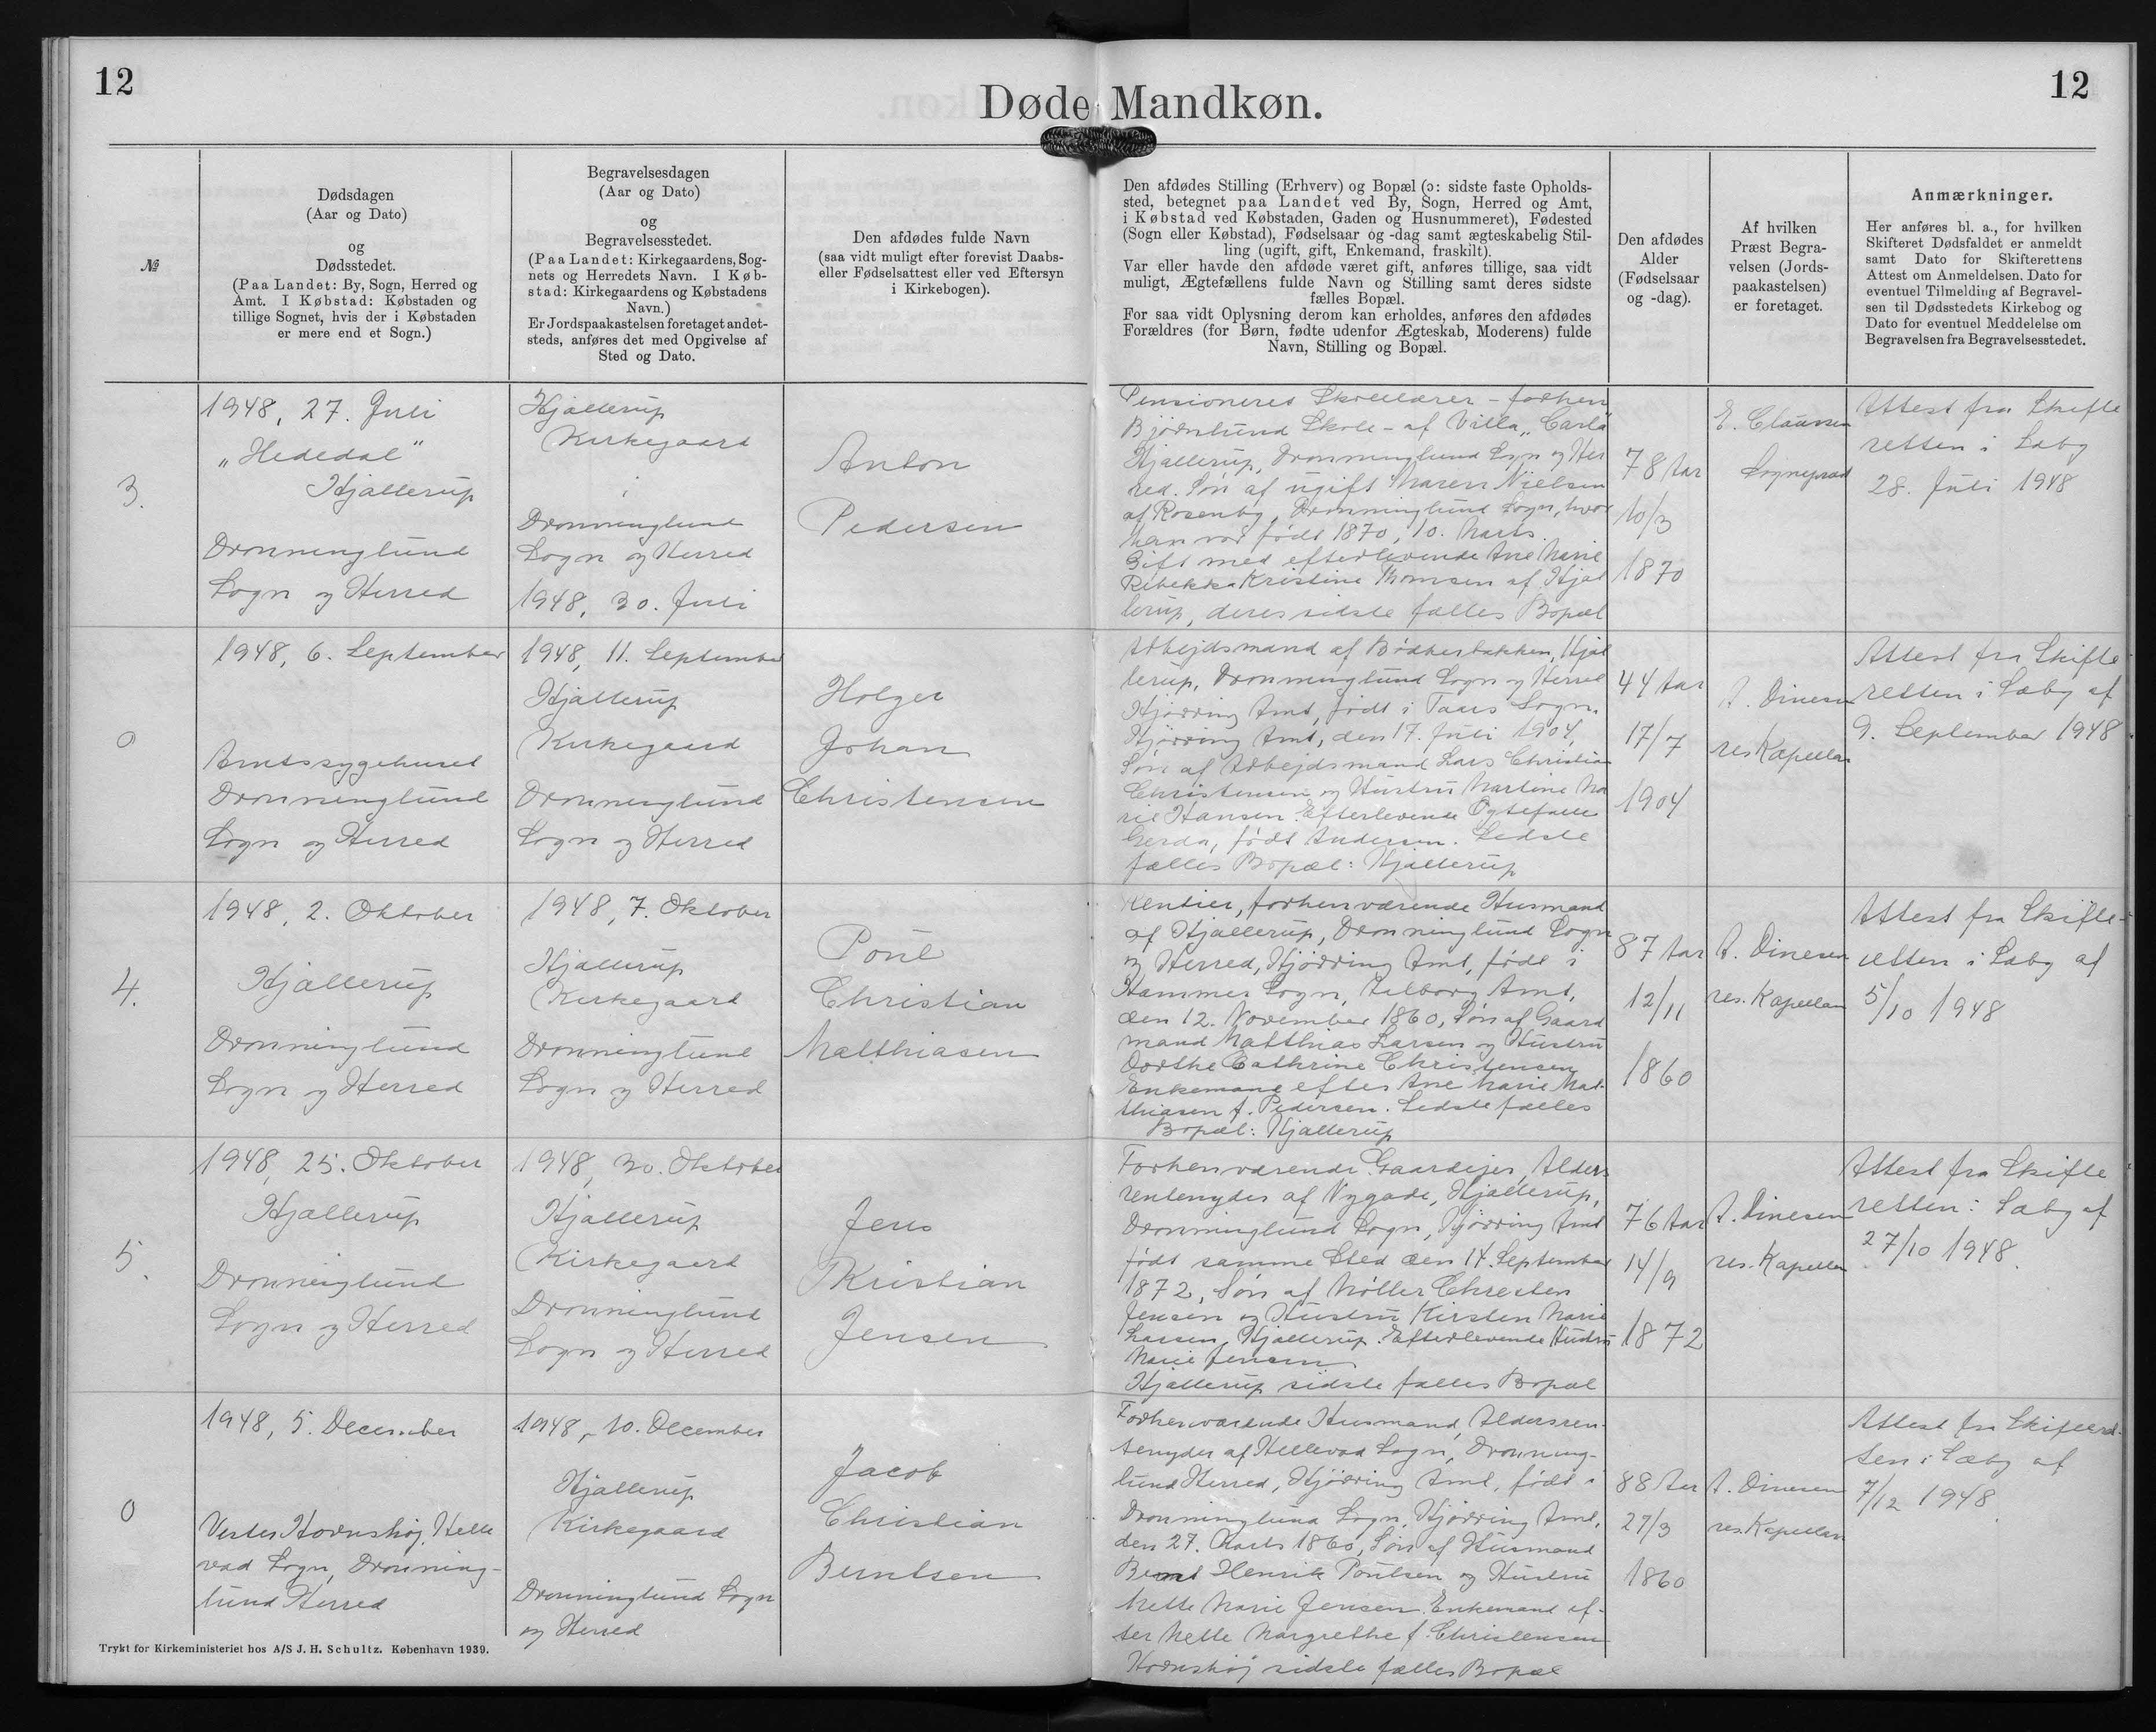 12
12
Døde Mandkøn.
№
Dødsdagen
(Aar og Dato)
og
Dødsstedet.
(Paa Landet: By, Sogn, Herred og
Amt. I Købstad: Købstaden og
tillige Sognet, hvis der i Købstaden
er mere end et Sogn.)
Begravelsesdagen
(Aar og Dato)
og
Begravelsesstedet.
(Paa Landet: Kirkegaardens, Sog-
nets og Herredets Navn. I Køb-
stad: Kirkegaardens og Købstadens
Navn.)
Er Jordspaakastelsen foretaget andet-
steds, anføres det med Opgivelse af
Sted og Dato.
Den afdødes fulde Navn
(saa vidt muligt efter forevist Daabs-
eller Fødselsattest eller ved Eftersyn
i Kirkebogen).
Den afdødes Stilling (Erhverv) og Bopæl (ɔ: sidste faste Opholds-
sted, betegnet paa Landet ved By, Sogn, Herred og Amt,
i Købstad ved Købstaden, Gaden og Husnummeret), Fødested
(Sogn eller Købstad), Fødselsaar og -dag samt ægteskabelig Stil-
ling (ugift, gift, Enkemand, fraskilt).
Var eller havde den afdøde været gift, anføres tillige, saa vidt
muligt, Ægtefællens fulde Navn og Stilling samt deres sidste
fælles Bopæl.
For saa vidt Oplysning derom kan erholdes, anføres den afdødes
Forældres (for Børn, fødte udenfor Ægteskab, Moderens) fulde
Navn, Stilling og Bopæl.
Den afdødes
Alder
(Fødselsaar
og -dag).
Af hvilken
Præst Begra-
velsen (Jords-
paakastelsen)
er foretaget.
Anmærkninger.
Her anføres bl. a., for hvilken
Skifteret Dødsfaldet er anmeldt
samt Dato for Skifterettens
Attest om Anmeldelsen. Dato for
eventuel Tilmelding af Begravel-
sen til Dødsstedets Kirkebog og
Dato for eventuel Meddelelse om
Begravelsen fra Begravelsesstedet.
3.
1948, 27. Juli
„Hededal"
Hjallerup
Dronninglund
Sogn og Herred
Hjallerup
Kirkegaard
i
Dronninglund
Sogn og Herred
1948, 30. Juli
Anton
Pedersen
Pensioneret Skolelærer - forhen
Bjørnlund Skole - af Villa „Carla"
Hjallerup, Dronninglund Sogn og Her
red. Søn af ugift Maren Nielsen
af Rosenby, Dronninglund Sogn, hvor
han var født 1870, 10. Marts.
Gift med efterlevende Ane Marie
Rebekka Kristine Thomsen af Hjal
lerup, deres sidste fælles Bopæl
78 Aar
10/3
1870
E. Claussen
Sognepræst
Attest fra Skifte
retten i Sæby
28. Juli 1948
0
1948, 6. September
Amtssygehuset
Dronninglund
Sogn og Herred
1948, 11. September
Hjallerup
Kirkegaard
Dronninglund
Sogn og Herred
Holger
Johan
Christensen
Arbejdsmand af Bødkerbakken, Hjal
lerup, Dronninglund Sogn og Herred
Hjørring Amt, født i Taars Sogn
Hjørring Amt, den 17. Juli 1904,
Søn af Arbejdsmand Lars Christian
Christensen og Hustru Martine Ma
rie Hansen. Efterlevende Ægtefælle
Gerda, født Andersen. Sidste
fælles Bopæl: Hjallerup
44 Aar
17/7
1904
A. Dinesen
res Kapellan
Attest fra Skifte
retten i Sæby af
9. September 1948
4.
1948, 2. Oktober
Hjallerup
Dronninglund
Sogn og Herred
1948, 7. Oktober
Hjallerup
Kirkegaard
Dronninglund
Sogn og Herred
Poul
Christian
Matthiasen
Rentier, forhenværende Husmand
af Hjallerup, Dronninglund Sogn
og Herred, Hjørring Amt, født i
Hammer Sogn, Aalborg Amt,
den 12. November 1860, Søn af Gaard
mand Matthias Larsen og Hustru
Dorthe Cathrine Christensen
Enkemand efter Ane Marie Mat-
thiasen f. Pedersen. Sidste fælles
Bopæl: Hjallerup
87 Aar
12/11
1860
A. Dinesen
res. Kapellan
Attest fra Skifte-
retten i Sæby af
5/10 1948
5.
1948, 25. Oktober
Hjallerup
Dronninglund
Sogn og Herred
1948, 30. Oktober
Hjallerup
Kirkegaard
Dronninglund
Sogn og Herred
Jens
Kristian
Jensen
Forhenværende Gaardejer, Alders
rentenyder af Nygade, Hjallerup,
Dronninglund Sogn, Hjørring Amt
født samme Sted den 14. September
1872, Søn af Møller Chresten
Jensen og Hustru Kirsten Marie
Larsen, Hjallerup. Efterlevende Hustru
Marie Jensen
Hjallerup sidste fælles Bopæl
76 Aar
14/9
1872
A. Dinesen
res. Kapellan
Attest fra Skifte
retten i Sæby af
27/10 1948.
0
1948, 5. December
Vester Hornshøj, Helle
vad Sogn, Dronning-
lund Herred
1948, 10. December
Hjallerup
Kirkegaard
Dronninglund Sogn
og Herred
Jacob
Christian
Berntsen
Forhenværende Husmand, Aldersren-
tenyder af Hellevad Sogn, Dronning-
lund Herred, Hjørring Amt, født i
Dronninglund Sogn, Hjørring Amt,
den 27. Marts 1860, Søn af Husmand
Bernt Henrik Poulsen og Hustru
Mette Marie Jensen. Enkemand ef-
ter Mette Margrethe f. Christensen
Hornshøj sidste fælles Bopæl
88 Aar
27/3
1860
A. Dinesen
res. Kapellan
Attest fra Skifteret-
ten i Sæby af
7/12 1948
Trykt for Kirkeministeriet hos A/S J. H. Schultz. København 1939.